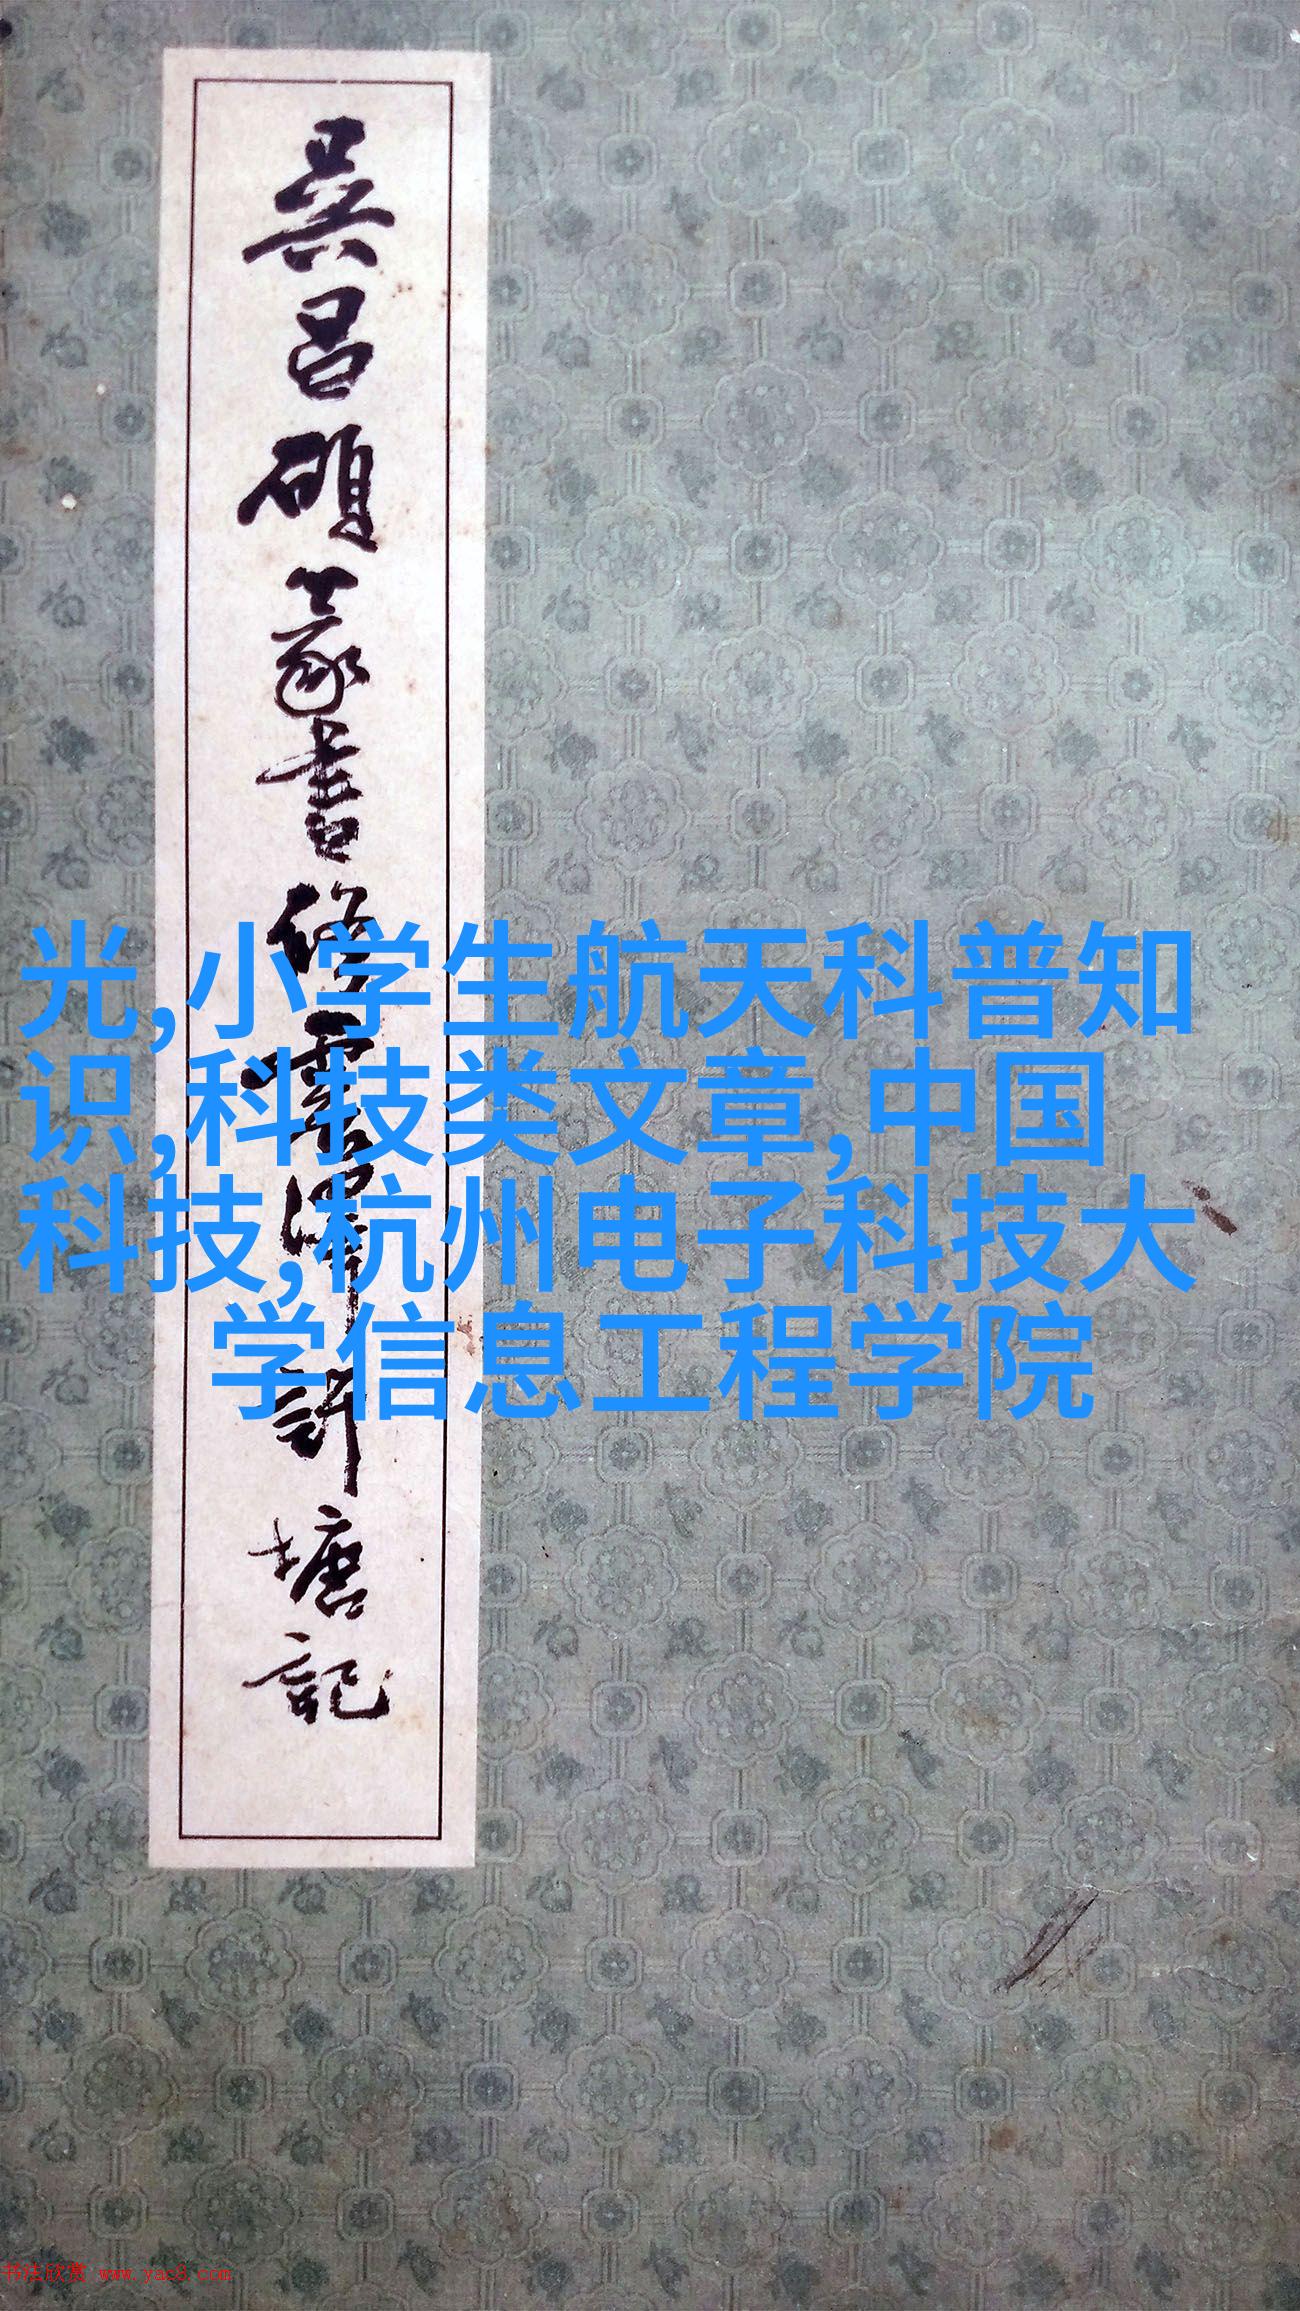 吴昌硕篆书修震泽许塘記
光,小学生航天科普知
识,科技类文章,中国
科技,杭州电子科技大
学信息工程学院
书法欣赏 www.yac8.com